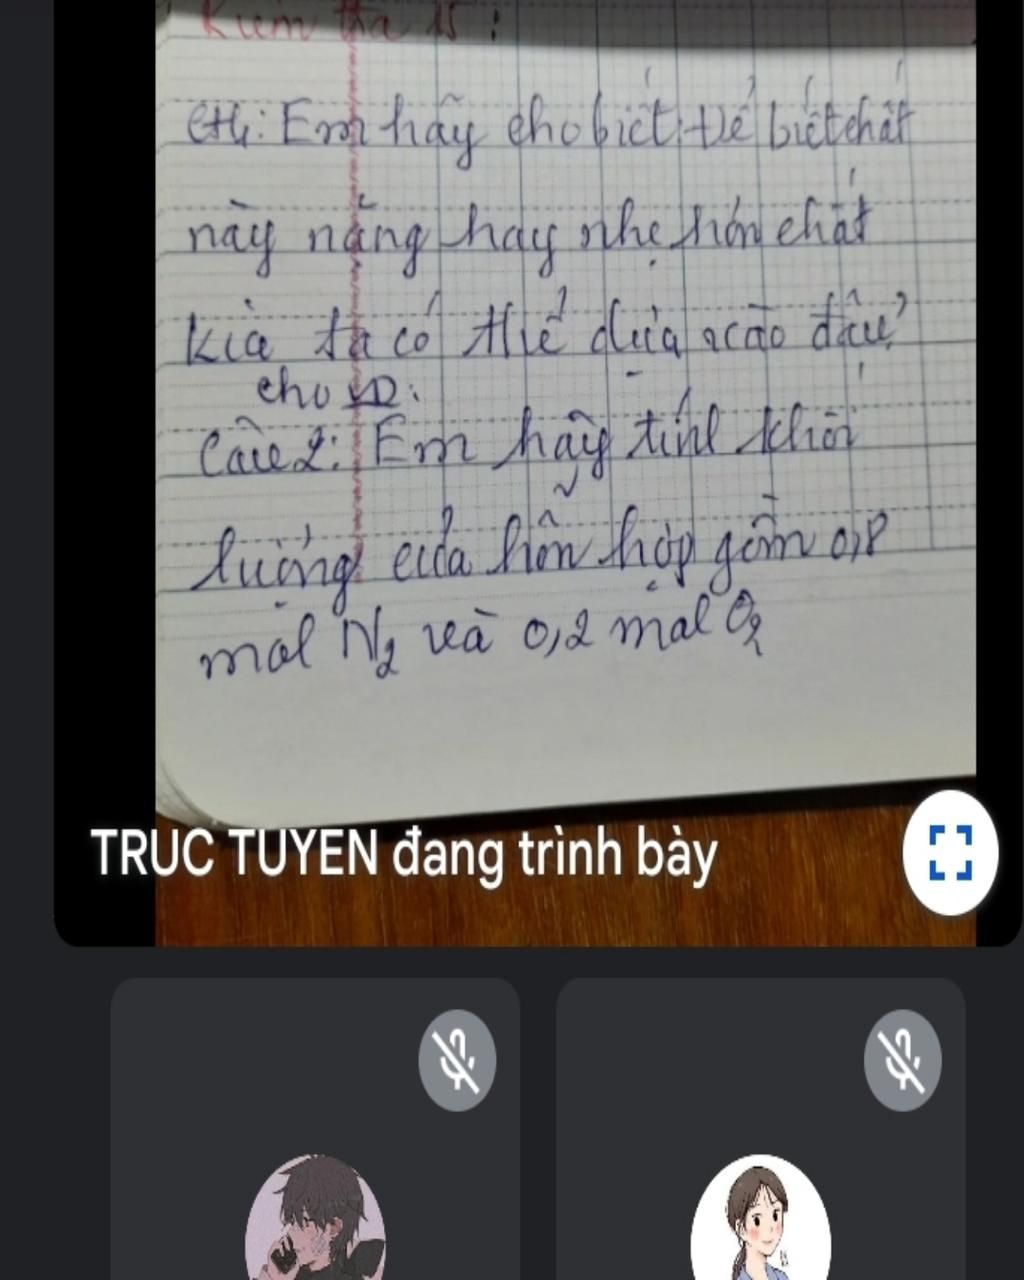 Kiểm tra 15':
C1: Em hãy cho biết: Để biết chất
này nặng hay nhẹ hơn chất
kia ta có thể dựa vào đâu?
cho VD:
Câu 2: Em hãy tính khối
lượng của hỗn hợp gồm 0,8
mol N₂ và 0,2 mol O₂
TRUC TUYEN đang trình bày